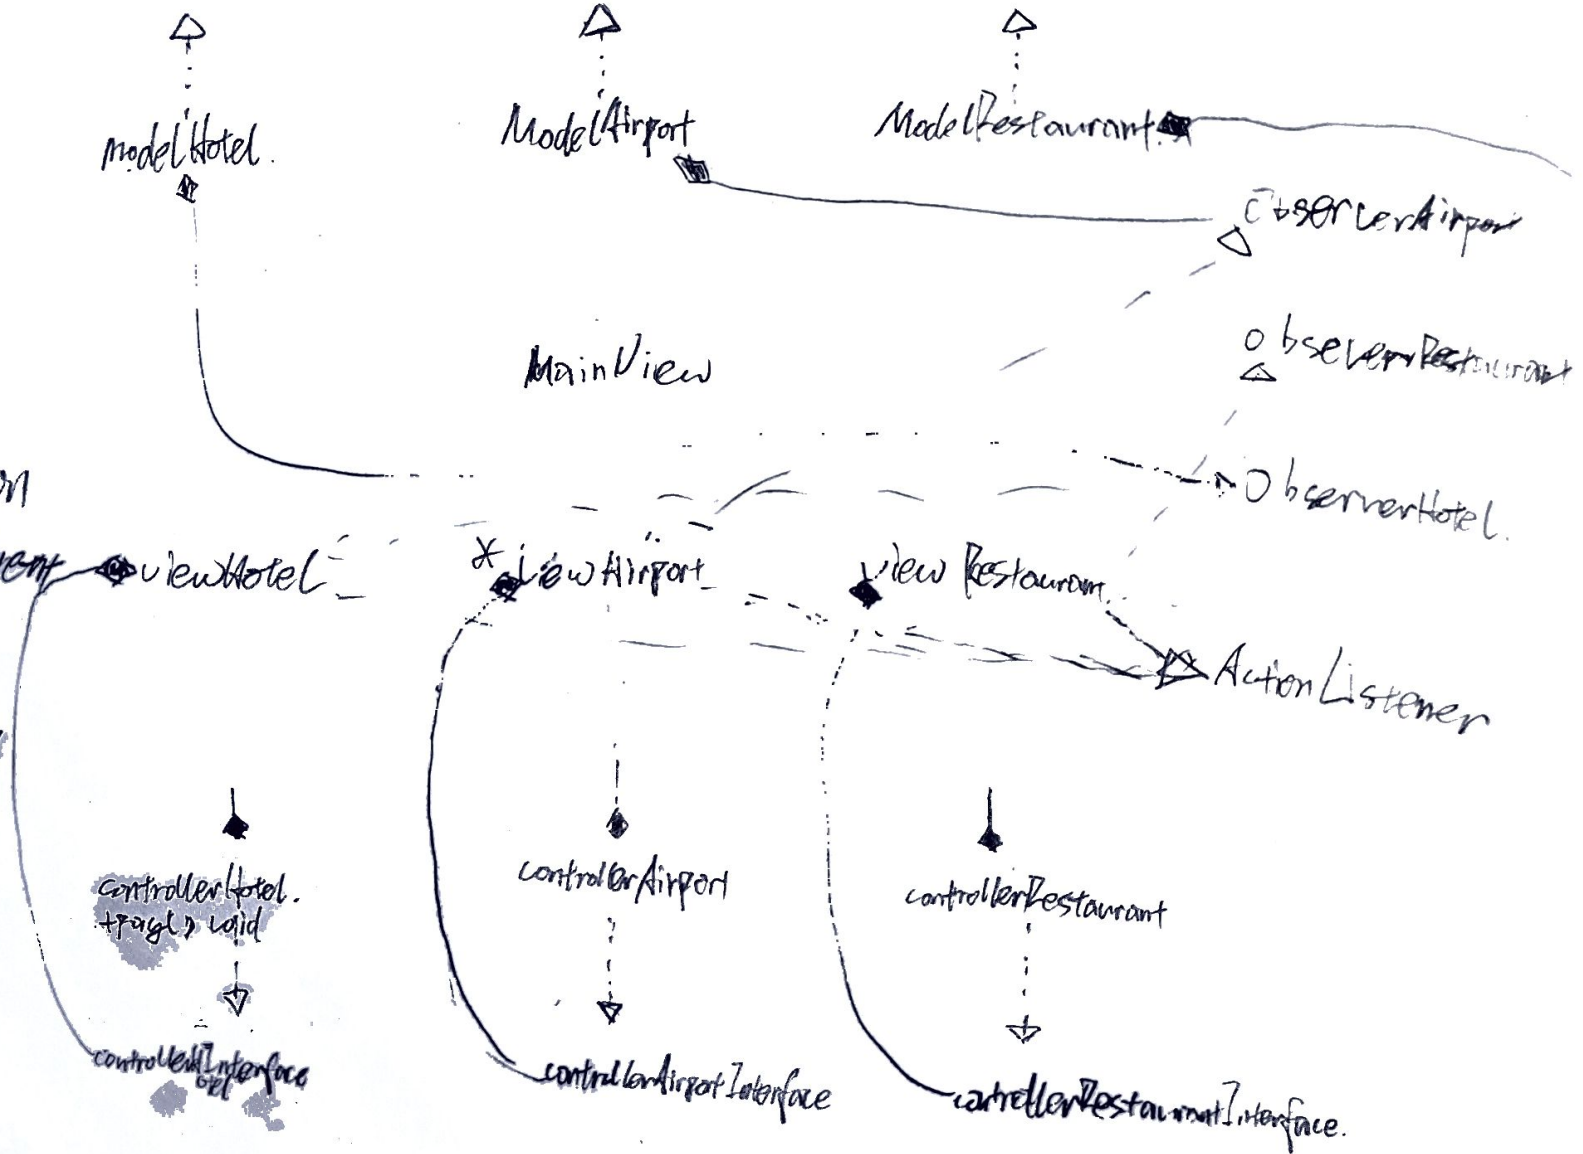 modelHotel.
ModelAirport
ModelRestaurant
ObserverAirport
MainView
ObseverRestaurant
ObserverHotel.
viewHotel
*
viewAirport
viewRestaurant
ActionListener
controllerHotel.
controllerAirport
controllerRestaurant
controllerHInterface
otel
controllerAirportInterface
controllerRestaurantInterface.